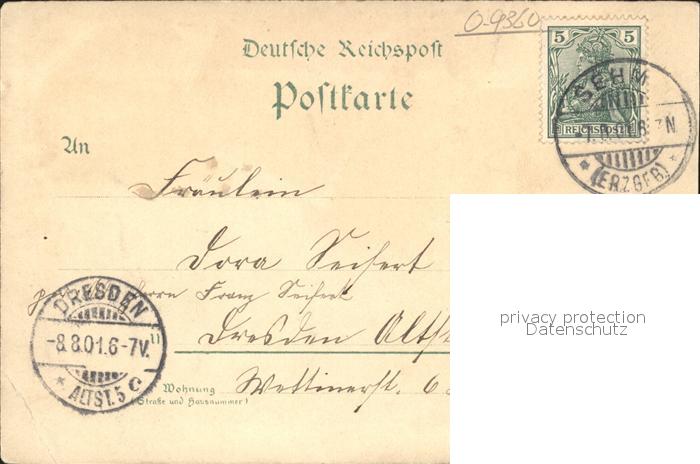 0-9360
Deutsche Reichspost
Postkarte
5 5
REICHSPOST
SEHM
(ERZGEB.)
An
Fräulein
Dora Seifert
Herrn Franz Seifert
Dresden Altst
Wettinerst. 6
Wohnung
(Straße und Hausnummer)
DRESDEN
-8.8.01.6-7V.
ALTST. 5 c
privacy protection
Datenschutz